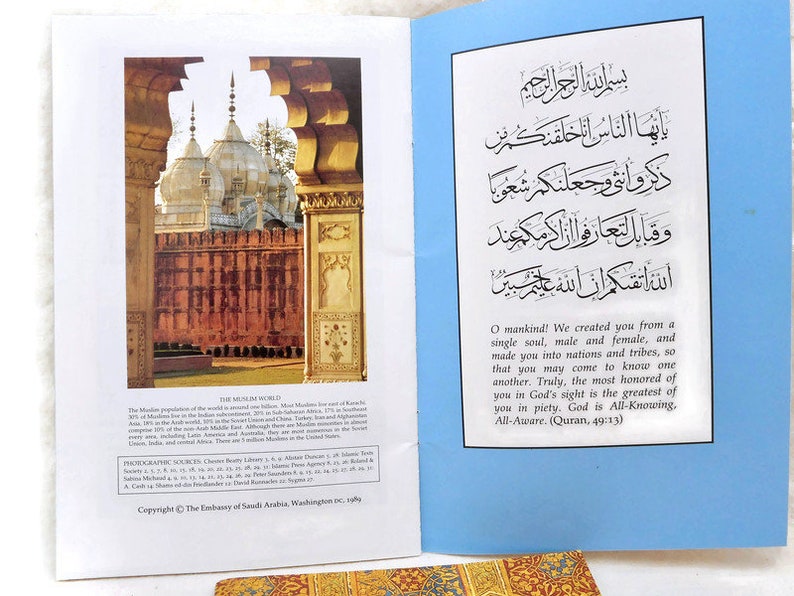 THE MUSLIM WORLD
The Muslim population of the world is around one billion. Most Muslims live east of Karachi.
30% of Muslims live in the Indian subcontinent, 20% in Sub-Saharan Africa, 17% in Southeast
Asia, 18% in the Arab world, 10% in the Soviet Union and China. Turkey, Iran and Afghanistan
comprise 10% of the non-Arab Middle East. Although there are Muslim minorities in almost
every area, including Latin America and Australia, they are most numerous in the Soviet
Union, India, and central Africa. There are 5 million Muslims in the United States.
PHOTOGRAPHIC SOURCES: Chester Beatty Library 3, 6, 9: Alistair Duncan 5, 28: Islamic Texts
Society 2, 5, 7, 8, 10, 15, 18, 19, 20, 22, 23, 25, 28, 29, 31: Islamic Press Agency 8, 23, 26: Roland &
Sabina Michaud 4, 9, 10, 13, 14, 21, 23, 24, 26, 29: Peter Saunders 8, 9, 15, 22, 24, 25, 27, 28, 29, 31:
A. Cash 14: Shams ed-din Friedlander 12: David Runnacles 22: Sygma 27
Copyright © The Embassy of Saudi Arabia, Washington DC, 1989
بسم الله الرحمن الرحيم
يأيها الناس انا خلقنكم من
ذكر وأنثى وجعلنكم شعوبا
وقبايل لتعارفوا ان اكرمكم عند
الله أتقىكم ان الله عليم خبير
O mankind! We created you from a
single soul, male and female, and
made you into nations and tribes, so
that you may come to know one
another. Truly, the most honored of
you in God's sight is the greatest of
you in piety. God is All-Knowing,
All-Aware. (Quran, 49:13)